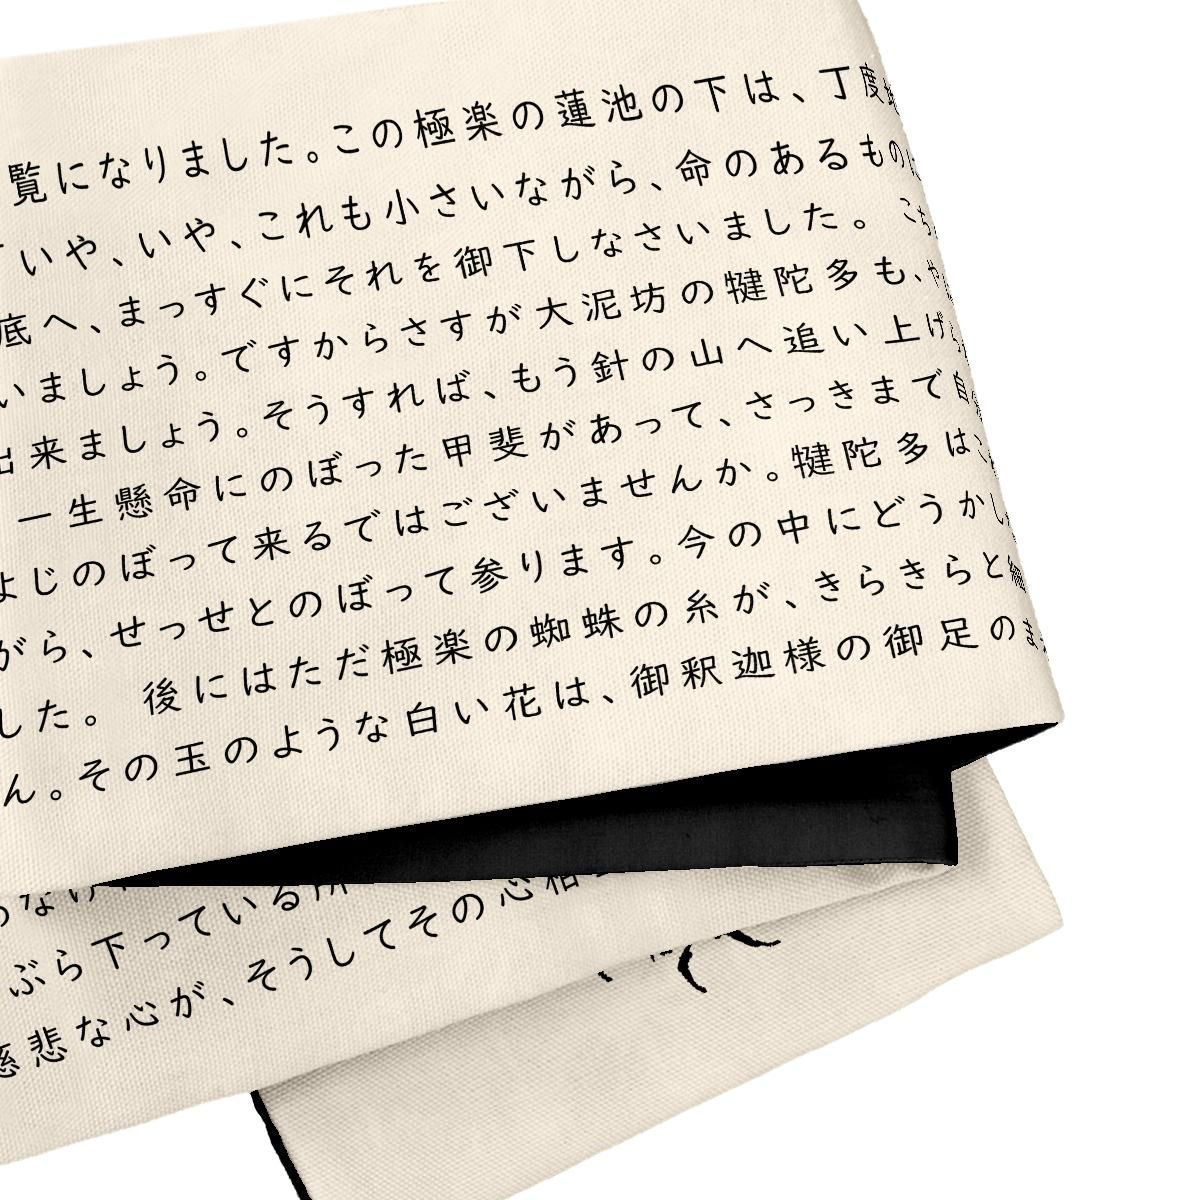 覧になりました。この極楽の蓮池の下は、丁度
いや、いや、これも小さいながら、命のあるもの
底へ、まっすぐにそれを御下しなさいました。 こち
いましょう。ですからさすが大泥坊の犍陀多も、や
出来ましょう。そうすれば、もう針の山へ追い上げ
一生懸命にのぼった甲斐があって、さっきまで自
よじのぼって来るではございませんか。犍陀多はこ
がら、せっせとのぼって参ります。今の中にどうかし
した。 後にはただ極楽の蜘蛛の糸が、きらきらと細
ん。その玉のような白い花は、御釈迦様の御足のま
なけ
ぶら下っている所
慈悲な心が、そうしてその心相